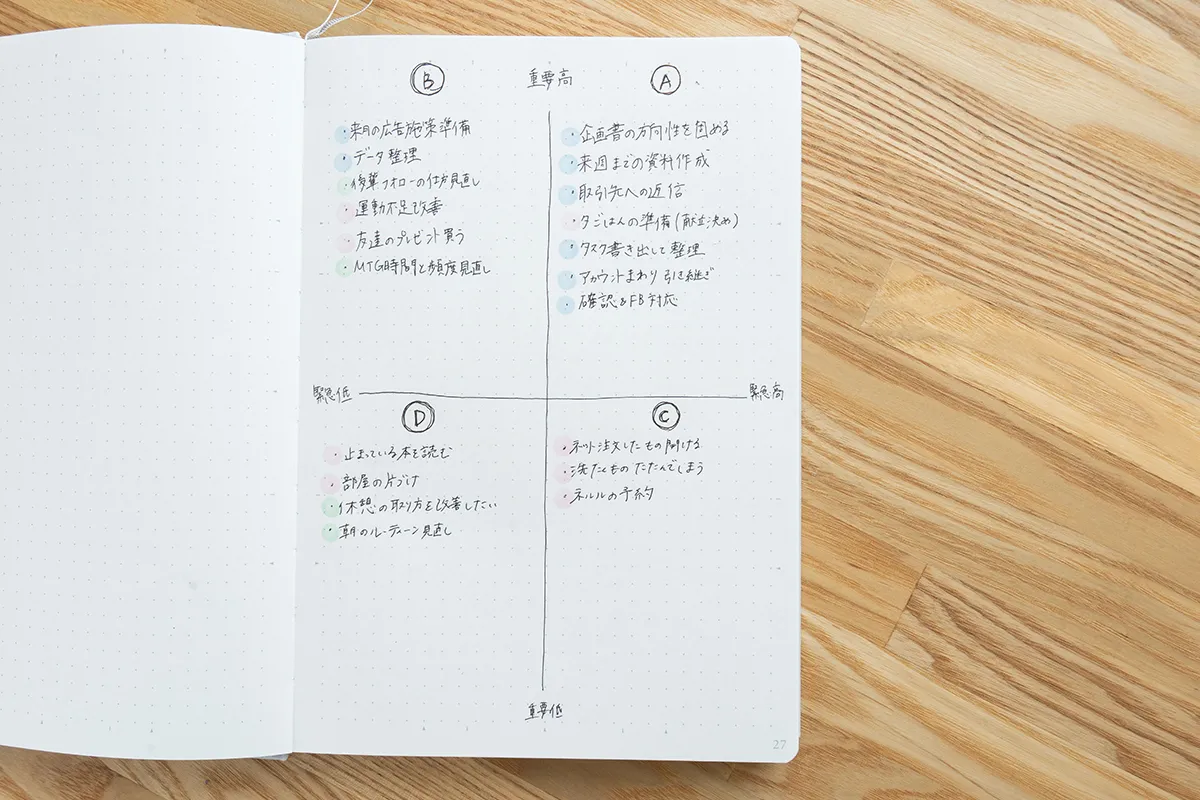 B
重要高
A
・来月の広告施策準備
・データ整理
・後輩フォローの仕方見直し
・運動不足改善
・友達のプレゼント買う
・MTG時間と頻度見直し
・企画書の方向性を固める
・来週までの資料作成
・取引先への返信
・夕ごはんの準備(献立決め)
・タスク書き出して整理
・アカウントまわり引き継ぎ
・確認&FB対応
緊急低
緊急高
D
C
・止まっている本を読む
・部屋の片づけ
・休憩の取り方を改善したい
・朝のルーティーン見直し
・ネット注文したもの開ける
・洗たくものたたんでしまう
・ネルルの予約
重要低
27